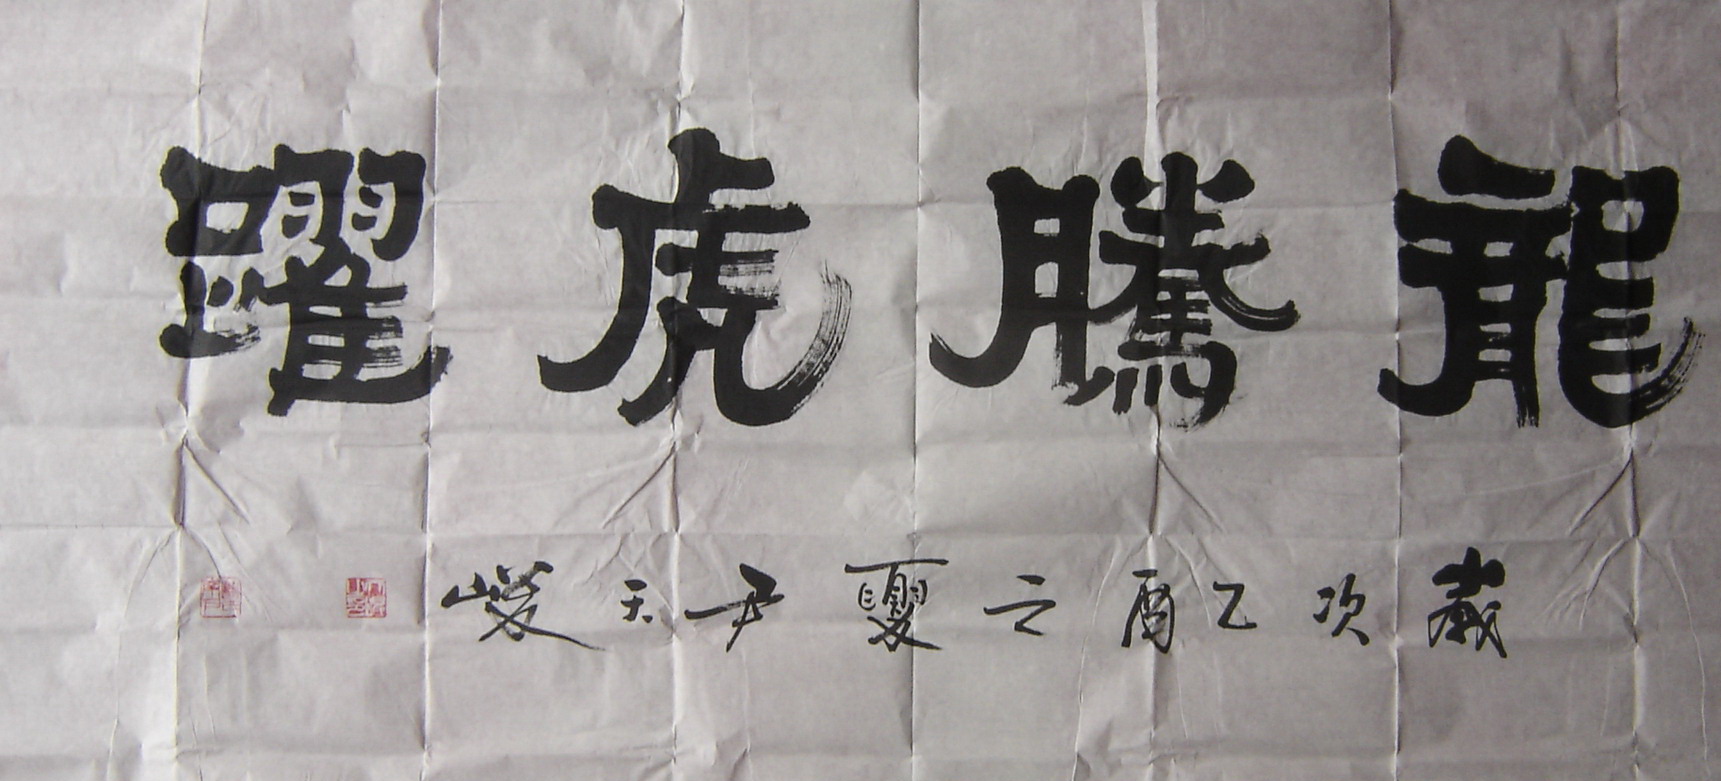 龍騰虎躍
歲次乙酉之夏尹天峻